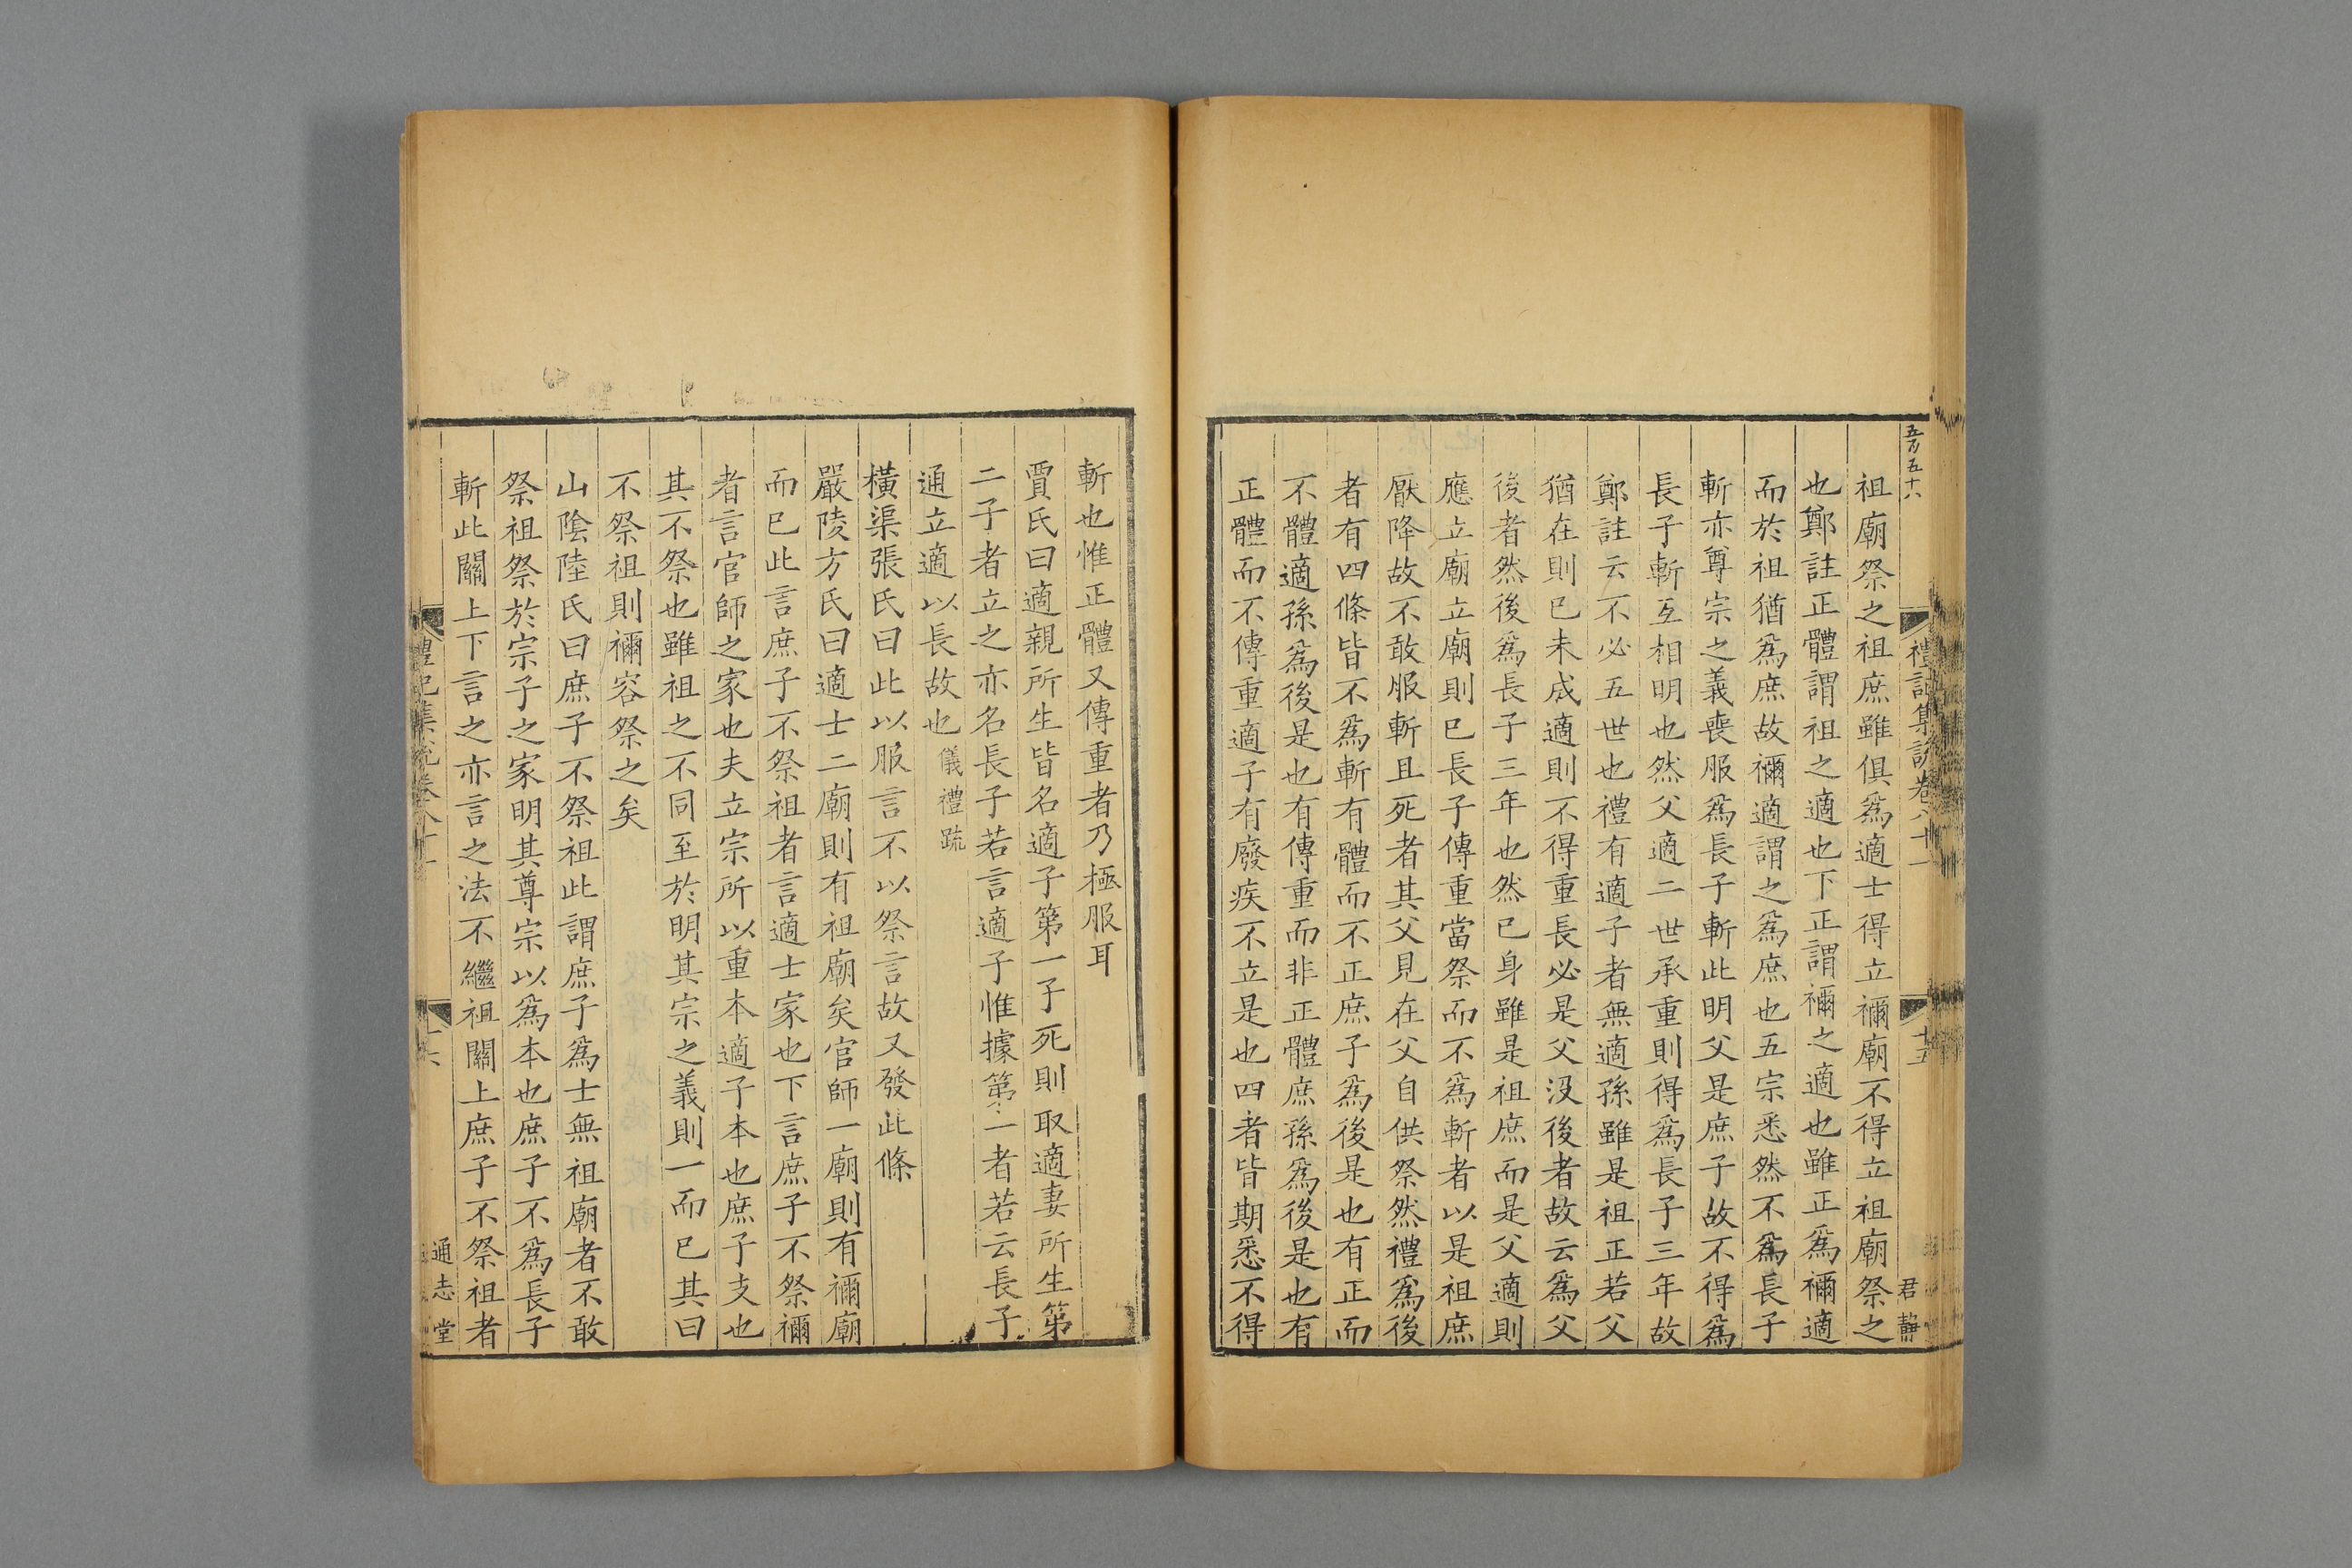 五百五十六
禮記集說卷八十一
十五
君靜
祖廟祭之祖庶雖俱爲適士得立禰廟不得立祖廟祭之
也鄭註正體謂祖之適也下正謂禰之適也雖正爲禰適
而於祖猶爲庶故禰適謂之爲庶也五宗悉然不爲長子
斬亦尊宗之義喪服爲長子斬此明父是庶子故不得爲
長子斬互相明也然父適二世承重則得爲長子三年故
鄭註云不必五世也禮有適子者無適孫雖是祖正若父
猶在則已未成適則不得重長必是父沒後者故云爲父
後者然後爲長子三年也然已身雖是祖庶而是父適則
應立廟立廟則已長子傳重當祭而不爲斬者以是祖庶
厭降故不敢服斬且死者其父見在父自供祭然禮爲後
者有四條皆不爲斬有體而不正庶子爲後是也有正而
不體適孫爲後是也有傳重而非正體庶孫爲後是也有
正體而不傳重適子有廢疾不立是也四者皆期悉不得
斬也惟正體又傳重者乃極服耳
賈氏曰適親所生皆名適子第一子死則取適妻所生第
二子者立之亦名長子若言適子惟據第一者若云長子
通立適以長故也儀禮疏
橫渠張氏曰此以服言不以祭言故又發此條
嚴陵方氏曰適士二廟則有祖廟矣官師一廟則有禰廟
而已此言庶子不祭祖者言適士家也下言庶子不祭禰
者言官師之家也夫立宗所以重本適子本也庶子支也
其不祭也雖祖之不同至於明其宗之義則一而已其曰
不祭祖則禰容祭之矣
山陰陸氏曰庶子不祭祖此謂庶子爲士無祖廟者不敢
祭祖祭於宗子之家明其尊宗以爲本也庶子不爲長子
斬此關上下言之亦言之法不繼祖關上庶子不祭祖者
禮記集說卷八十一
十六
通志堂